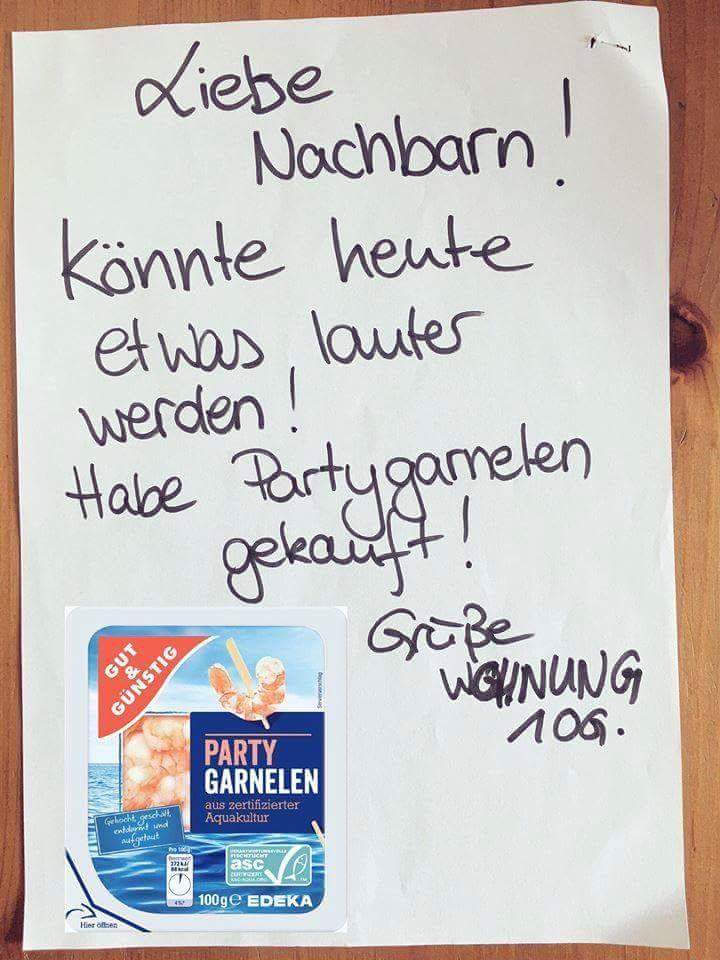 Liebe
Nachbarn!
Könnte heute
etwas lauter
werden!
Habe Partygarnelen
gekauft!
Grüße
WOHNUNG
10G.
GUT
&
GÜNSTIG
Serviervorschlag
PARTY
GARNELEN
aus zertifizierter
Aquakultur
Gekocht, geschält,
entdarmt und
aufgetaut
Pro 100g
Brennwert
372 kJ/
88 kcal
4%*
VERANTWORTUNGSVOLLE
FISCHZUCHT
asc
ZERTIFIZIERT
ASC-AQUA.ORG
TM
100g e EDEKA
Hier öffnen